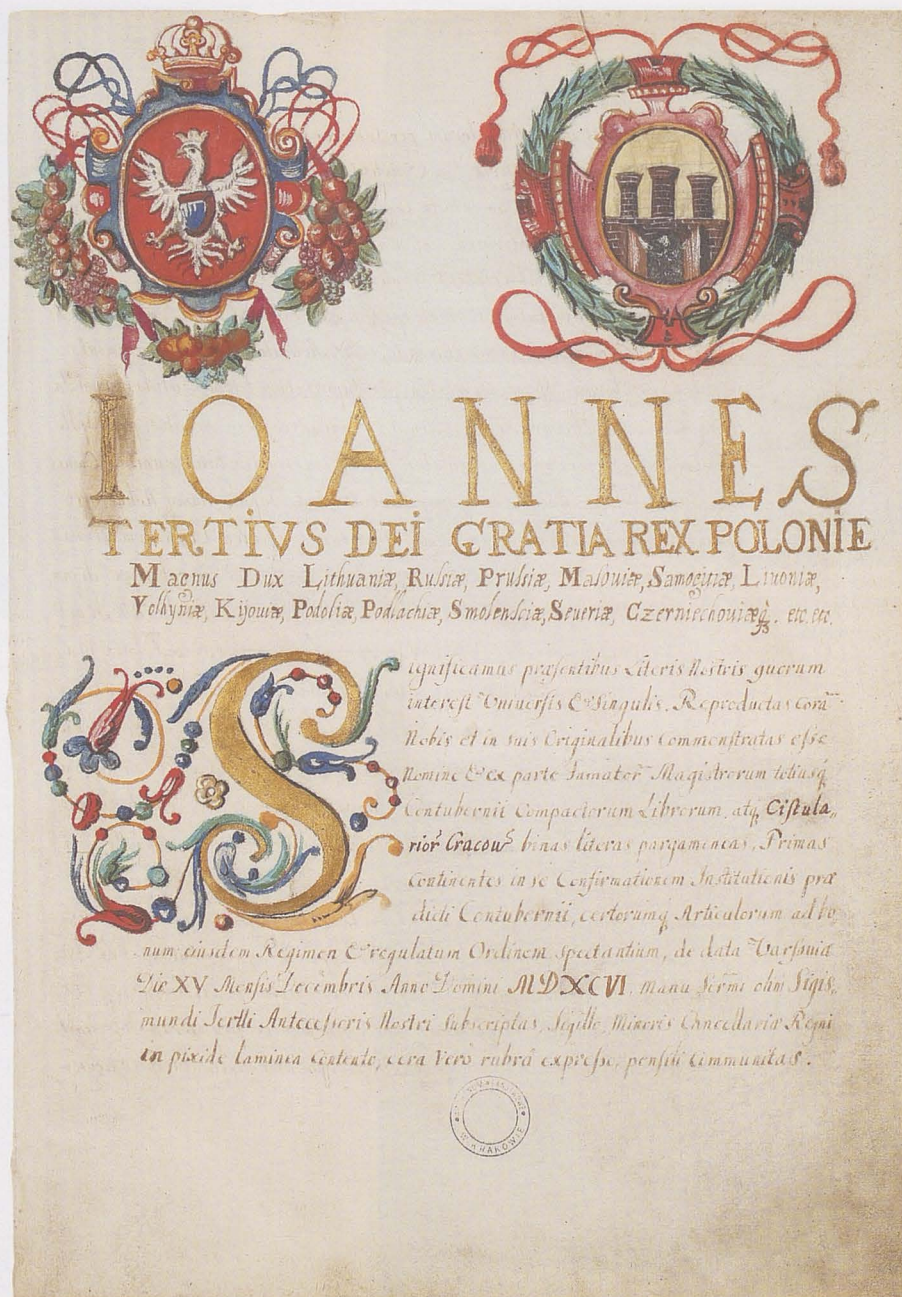 IOANNES
TERTIVS DEI GRATIA REX POLONIE
Magnus Dux Lithuaniæ, Russiæ, Prussiæ, Masouiæ, Samogitiæ, Liuoniæ,
Volhyniæ, Kijouiæ, Podoliæ, Podlachiæ, Smolensciæ, Seueriæ, Czerniechouiæq̃. etc. etc.
Significamus præsentibus Literis Nostris quorum
interest Vniuersis & Singulis. Reproductas corã
Nobis et in suis Originalibus Commonstratas esse
Nomine & ex parte Famator̃ Magistrorum totiusq̃
Contubernii Compactorum Librorum, atq̃ Cistula,,
rior̃ Cracou̅ binas literas pargameneas, Primas
Continentes in se Confirmationem Institutionis præ
dicti Contubernii, certorumq̃ Articulorum ad bo,,
num eiusdem Regimen & regulatum Ordinem spectantium, de data Varsouiæ
Die XV Mensis Decembris Anno Domini MDXCVI. manu Serm̃i olim Sigis,,
mundi Tertii Antecessoris Nostri Subscriptas, Sigillo, Minoris Cancellariæ Regni
in pixide laminea contento, cera Vero rubra expresso, pensili Communitas.
W KRAKOWIE